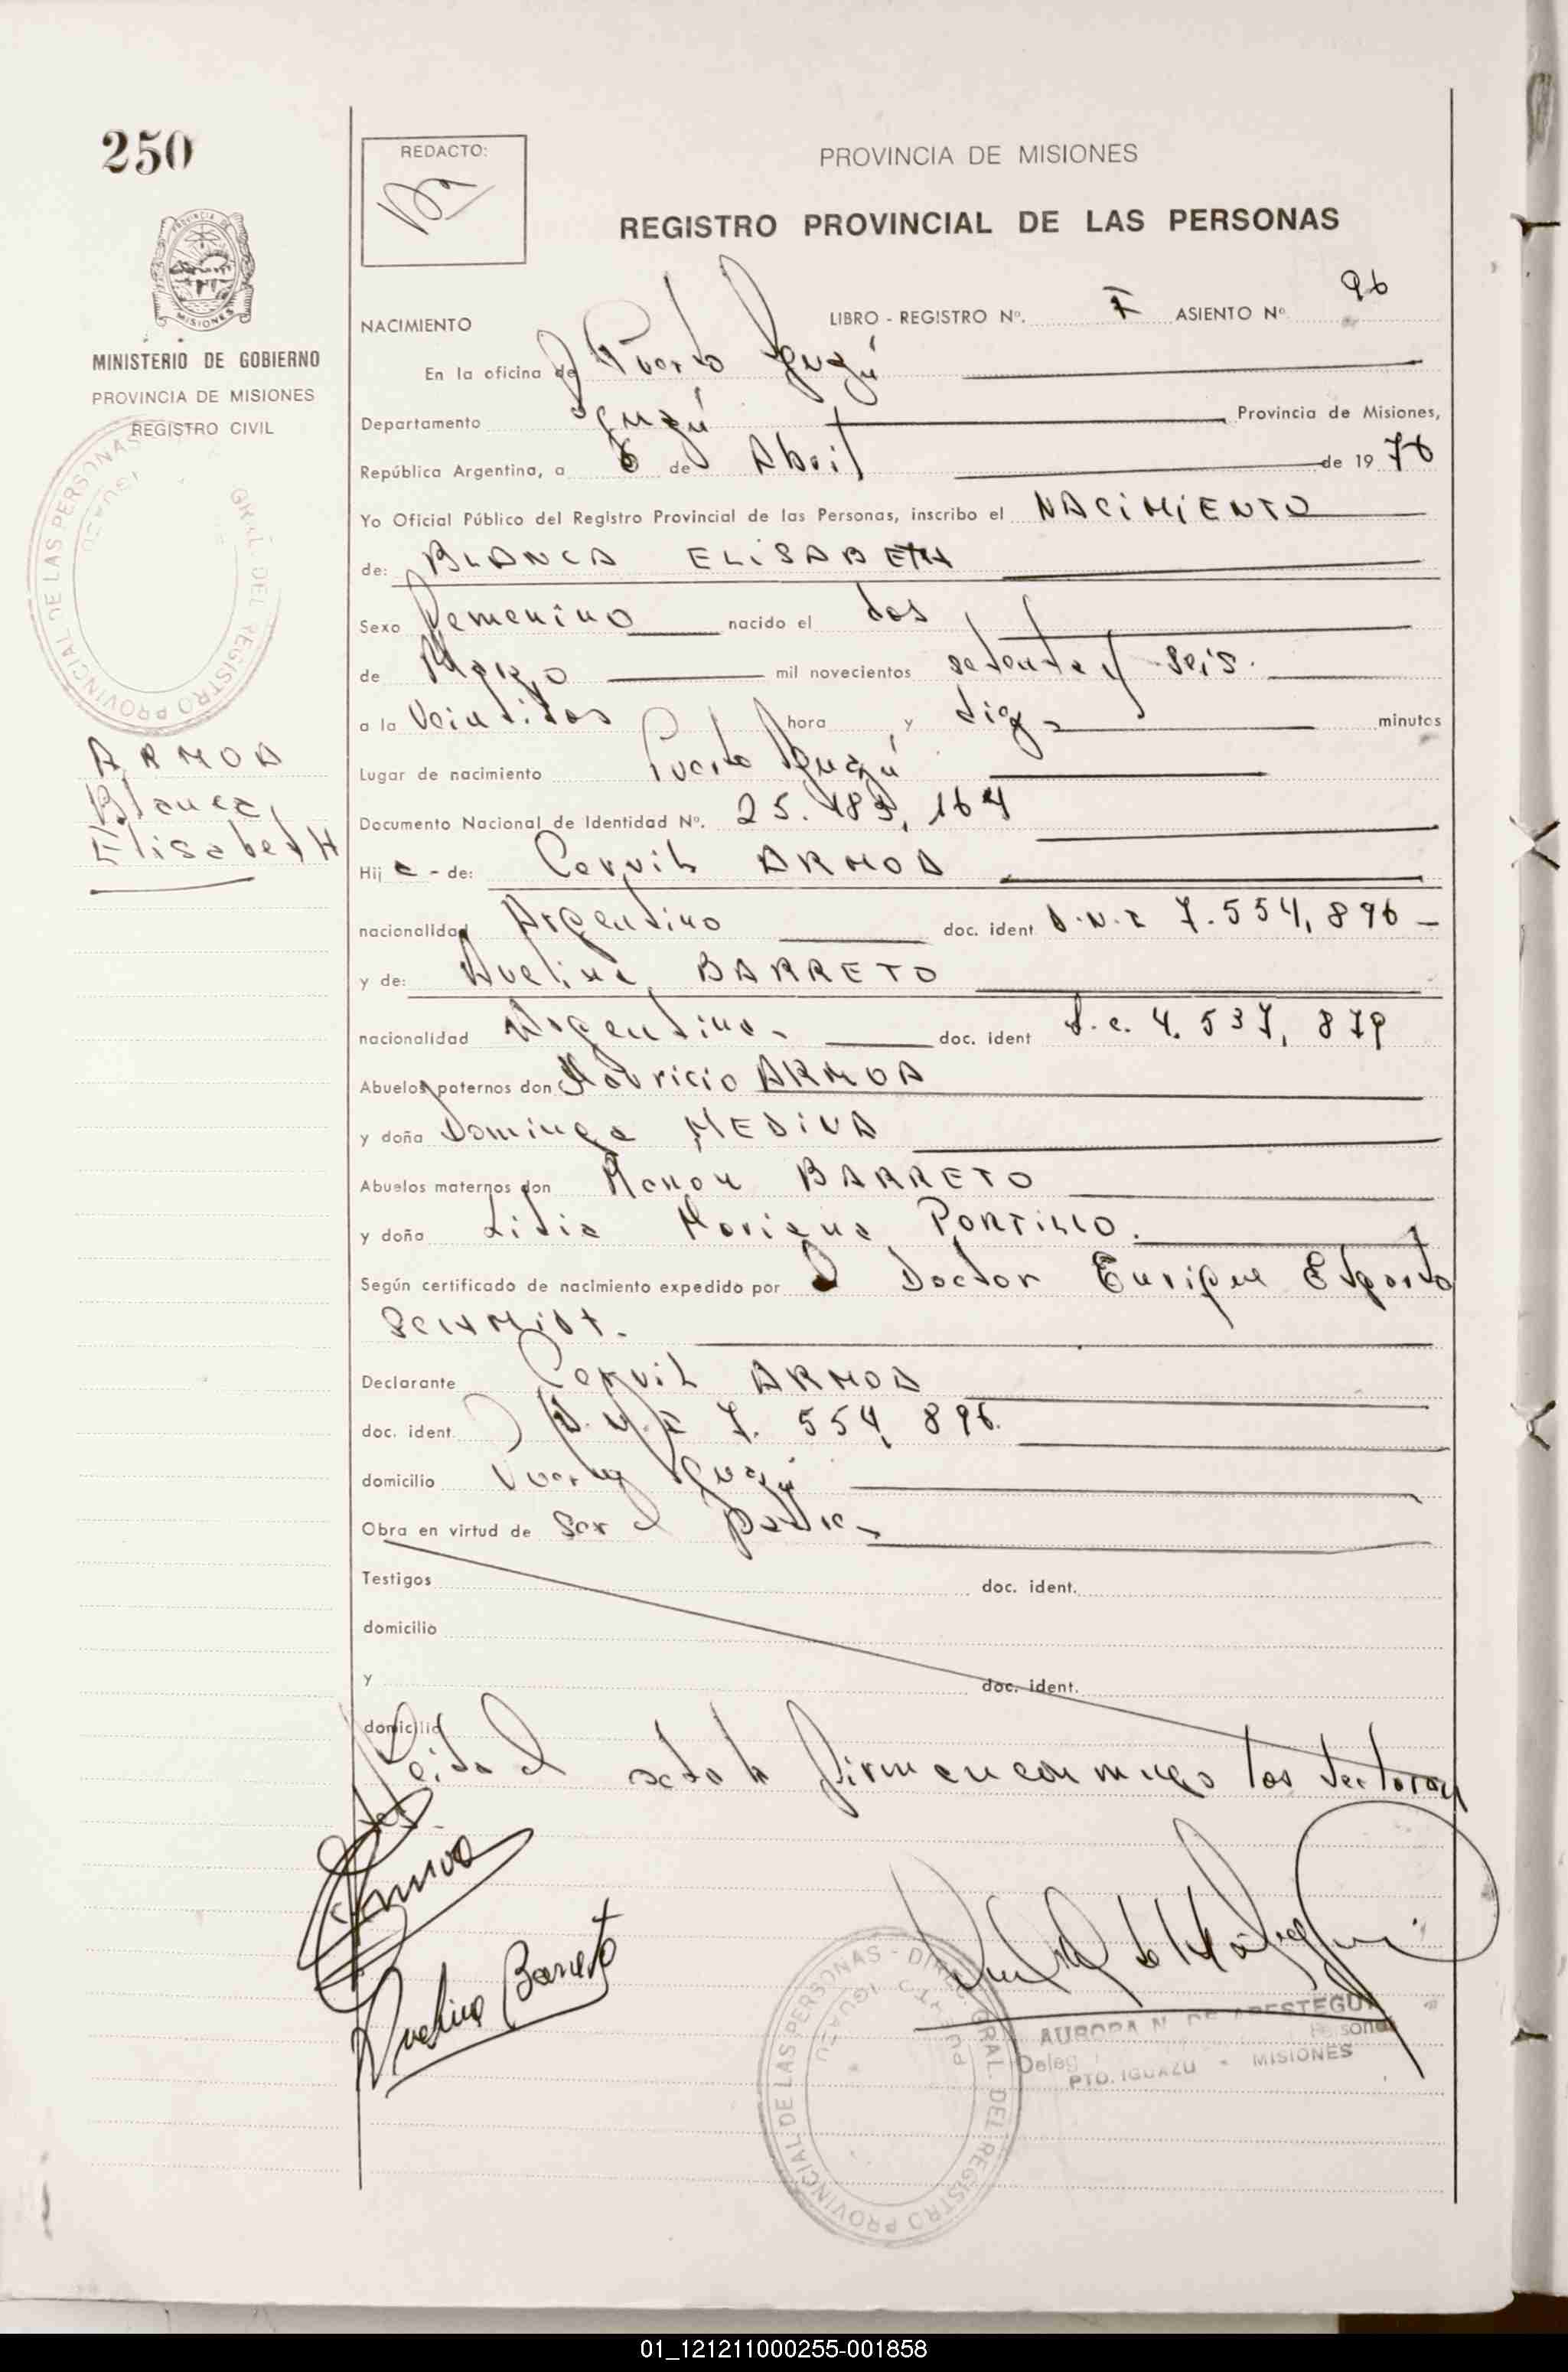 250
MINISTERIO DE GOBIERNO
PROVINCIA DE MISIONES
REGISTRO CIVIL
GRAL. DEL REGISTRO PROVINCIAL DE LAS PERSONAS
ARMOA
Blanca
ElisabetH
REDACTO:
PROVINCIA DE MISIONES
REGISTRO PROVINCIAL DE LAS PERSONAS
NACIMIENTO LIBRO - REGISTRO Nº. I ASIENTO Nº 96
En la oficina de Puerto Iguazú
Departamento Iguazú Provincia de Misiones,
República Argentina, a 6 de Abril de 1976
Yo Oficial Público del Registro Provincial de las Personas, inscribo el NACIMIENTO
de: BLANCA ELISABETH
Sexo Femenino nacido el dos
de Marzo mil novecientos setenta y seis.
a la Veintidos hora y diez minutos
Lugar de nacimiento Puerto Iguazú
Documento Nacional de Identidad Nº. 25.183,164
Hij a - de: ARMOA
nacionalidad Argentino doc. ident D.N.I 7.554,896
y de: Avelina BARRETO
nacionalidad Argentina doc. ident L.C. 4.537,879
Abuelos paternos don Mauricio ARMOA
y doña Dominga MEDINA
Abuelos maternos don Ramón BARRETO
y doña Lidia Mariana PORTILLO.
Según certificado de nacimiento expedido por Doctor Enrique
SCHMIDT.
Declarante ARMOA
doc. ident. D.N.I 7.554,896.
domicilio Puerto Iguazú
Obra en virtud de ser el padre
Testigos doc. ident.
domicilio
y doc. ident.
domicilio
Leida el acta la firman conmigo los
Avelina Barreto
DIREC. GRAL. DEL REGISTRO PROVINCIAL DE LAS PERSONAS -
PUERTO IGUAZU
AURORA N. DE ARESTEGUI
PTO. IGUAZU - MISIONES
01_121211000255-001858